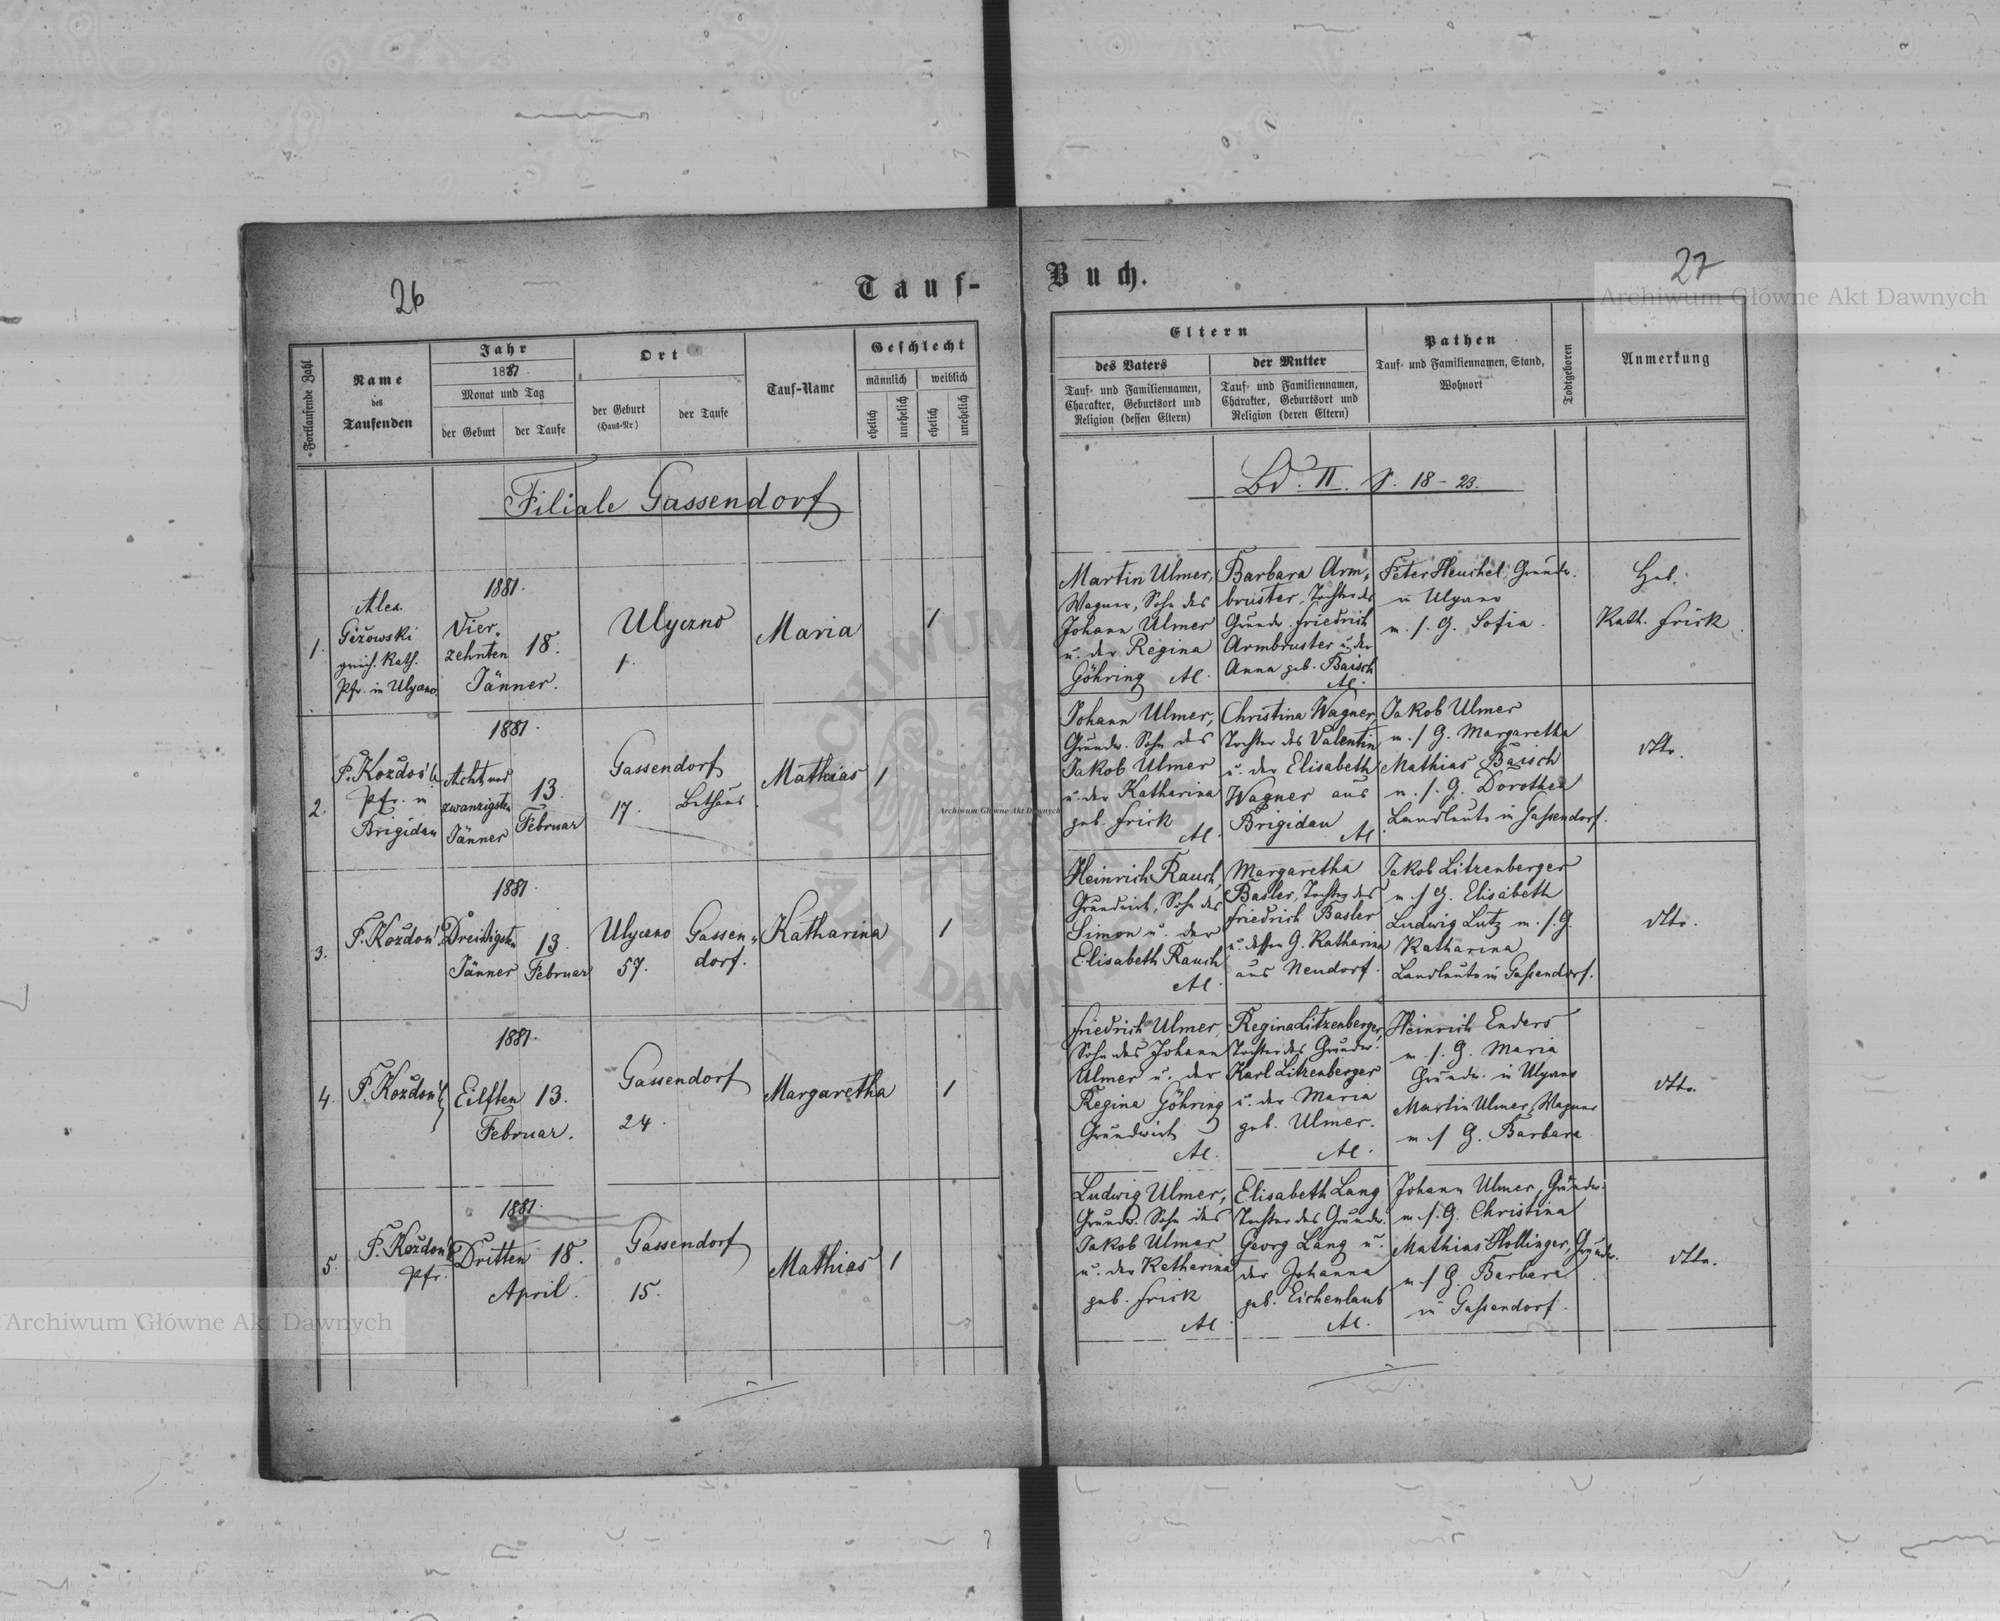 26
Tauf-
Buch.
27
Fortlaufende Zahl
Name
des
Taufenden
Jahr
1881
Monat und Tag
der Geburt
der Taufe
Ort
der Geburt
(Haus-Nr)
der Taufe
Tauf-Name
Geschlecht
männlich
weiblich
ehelich
unehelich
ehelich
unehelich
Eltern
des Vaters
Tauf- und Familiennamen,
Charakter, Geburtsort und
Religion (dessen Eltern)
der Mutter
Tauf- und Familiennamen,
Charakter, Geburtsort und
Religion (deren Eltern)
Pathen
Tauf- und Familiennamen, Stand,
Wohnort
Todtgeboren
Anmerkung
Filiale Gassendorf
Bd. II. S. 18-23.
1.
Alex.
Giżowski
griech. Kath.
Pfr. in Ulyczno
1881.
Vier-
zehnten
Jänner.
18.
Ulyczno
1.
Maria
1
Martin Ulmer,
Wagner, Sohn des
Johann Ulmer
u. der Regina
Göhring AC.
Barbara Arm-
bruster, Tochter des
Grundw. Friedrich
Armbruster u. der
Anna geb. Baisch
AC.
Peter Heuchel Grundw.
in Ulyczno
m. s. G. Sofia.
Heb.
Kath. Frick.
2.
F. Kozdoń
Pfr. in
Brigidau
1881.
Acht und
zwanzigsten
Jänner
13.
Februar
Gassendorf
17.
Bethaus
Mathias
1
Johann Ulmer,
Grundw. Sohn des
Jakob Ulmer
u. der Katharina
geb. Frick
AC.
Christina Wagner,
Tochter des Valentin
u. der Elisabeth
Wagner aus
Brigidau AC
Jakob Ulmer
m. s. G. Margaretha
Mathias Baisch
m. s. G. Dorothea
Landleute in Gassendorf.
dtto.
3.
F. Kozdoń
1881.
Dreißigsten
Jänner
13.
Februar
Ulyczno
57.
Gassen-
dorf.
Katharina
1
Heinrich Rauch,
Grundwirt, Sohn des
Simon u. der
Elisabeth Rauch
AC.
Margaretha
Basler, Tochter des
Friedrich Basler
u. dessen G. Katharina
aus Neudorf.
Jakob Litzenberger
m. s. G. Elisabeth
Ludwig Lutz m. s. G.
Katharina
Landleute in Gassendorf.
dtto.
4.
F. Kozdoń
1881.
Eilften
Februar.
13.
Gassendorf
24.
Margaretha
1
Friedrich Ulmer,
Sohn des Johann
Ulmer u. der
Regina Göhring
Grundwirt
AC.
Regina Litzenberger,
Tochter des Grundw.
Karl Litzenberger
u. der Maria
geb. Ulmer.
AC.
Heinrich Enders
m. s. G. Maria
Grundw. in Ulyczno
Martin Ulmer, Wagner
m. s. G. Barbara
dtto.
5.
F. Kozdoń
Pfr.
1881.
Dritten
April.
18.
Gassendorf
15.
Mathias
1
Ludwig Ulmer,
Grundw. Sohn des
Jakob Ulmer
u. der Katharina
geb. Frick
AC.
Elisabeth Lang
Tochter des Grundw.
Georg Lang u.
der Johanna
geb. Eichenlaub
AC.
Johann Ulmer, Grundw.
m. s. G. Christina
Mathias Hollinger, Grundw.
m. s. G. Barbara
in Gassendorf.
dtto.
Archiwum Główne Akt Dawnych
Archiwum Główne Akt Dawnych
Archiwum Główne Akt Dawnych